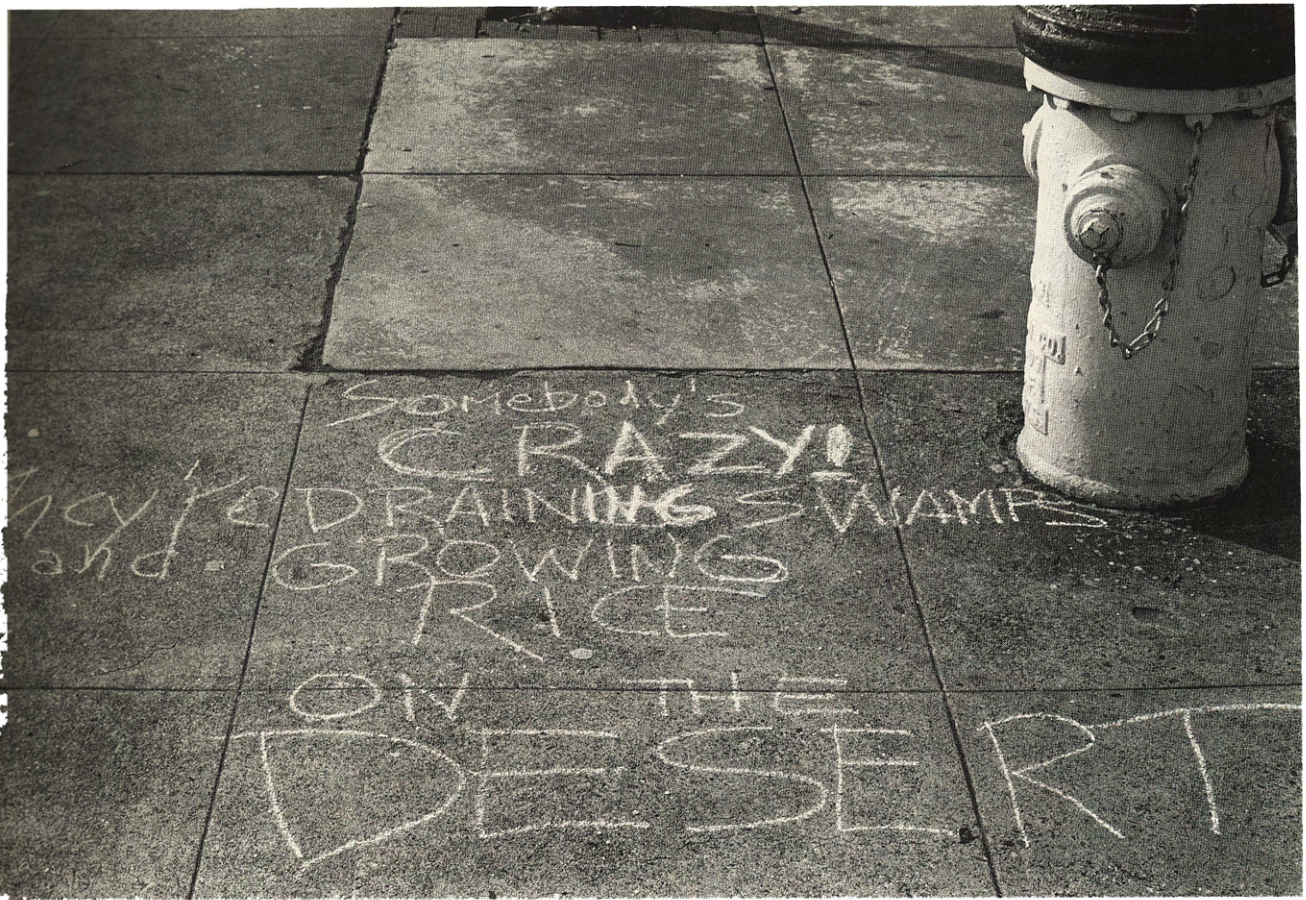 Somebody's
CRAZY!
They're DRAINING SWAMPS
and GROWING
RICE
ON THE
DESERT
CO.